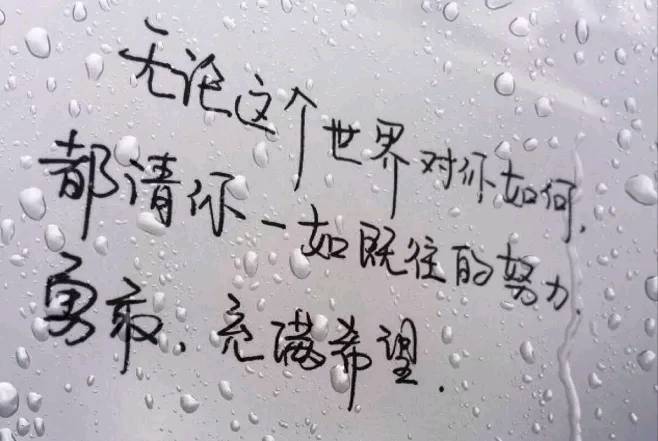 无论这个世界对你如何,
都请你一如既往的努力.
勇敢、充满希望.